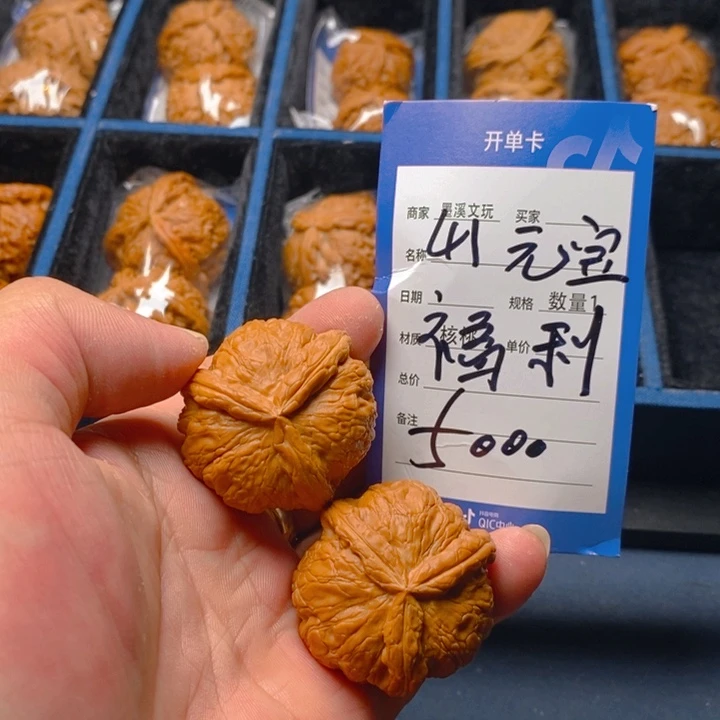 开单卡
商家 墨溪文玩 买家
名称 41 元宝
日期 规格 数量1
材质 核桃 单价
福利
总价
备注 5000
抖音电商
QIC中心